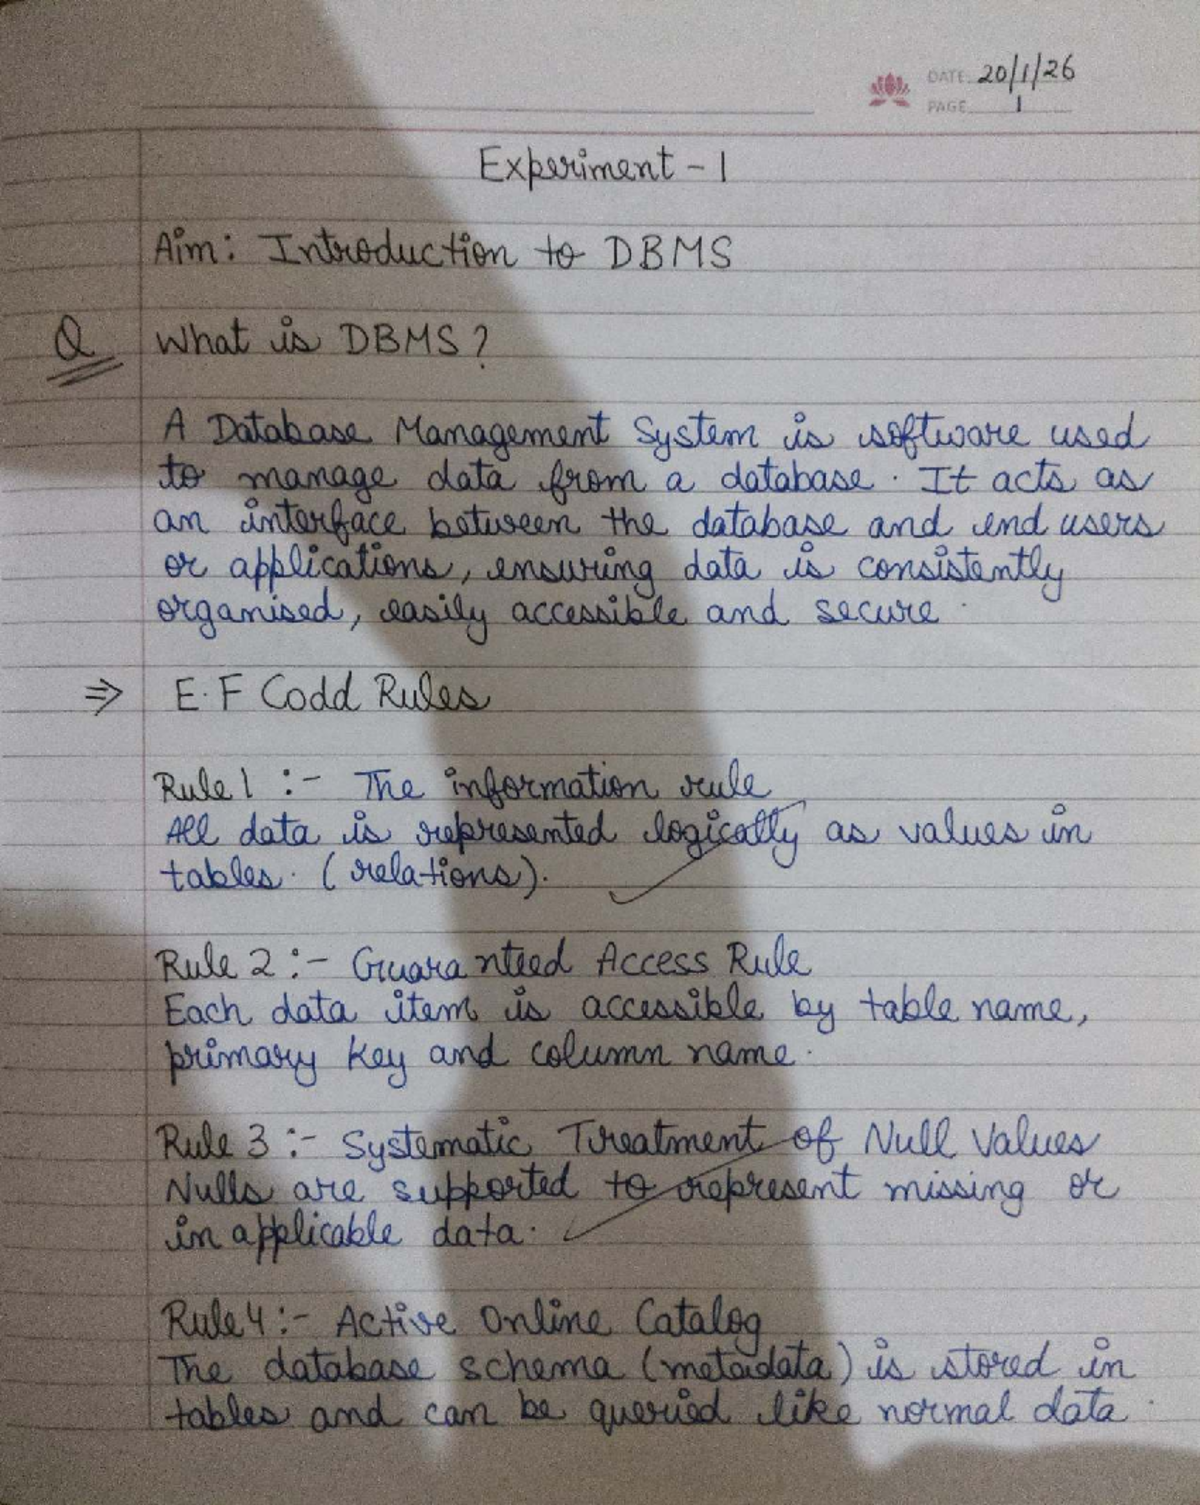 DATE 20/1/26
PAGE 1
Experiment - 1
Aim: Introduction to DBMS
Q What is DBMS?
A Database Management System is software used
to manage data from a database. It acts as
an interface between the database and end users
or applications, ensuring data is consistently
organised, easily accessible and secure.
⇒ E.F Codd Rules
Rule 1 :- The information rule
All data is represented logically as values in
tables. (relations).
Rule 2 :- Guaranteed Access Rule
Each data item is accessible by table name,
primary key and column name.
Rule 3 :- Systematic Treatment of Null Values
Nulls are supported to represent missing or
in applicable data.
Rule 4 :- Active Online Catalog
The database schema (metadata) is stored in
tables and can be queried like normal data.